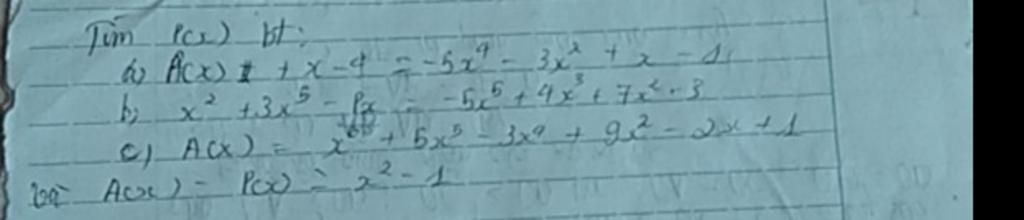 Tìm P(x) bt:
a) A(x) + x - 4 = -5x⁴ - 3x² + x - 1
b) x² + 3x⁵ - Px = -5x⁵ + 4x³ + 7x² - 3
c) A(x) = x⁶ + 5x⁵ - 3x⁴ + 9x² - 2x + 1
và A(x) - P(x) = x² - 1